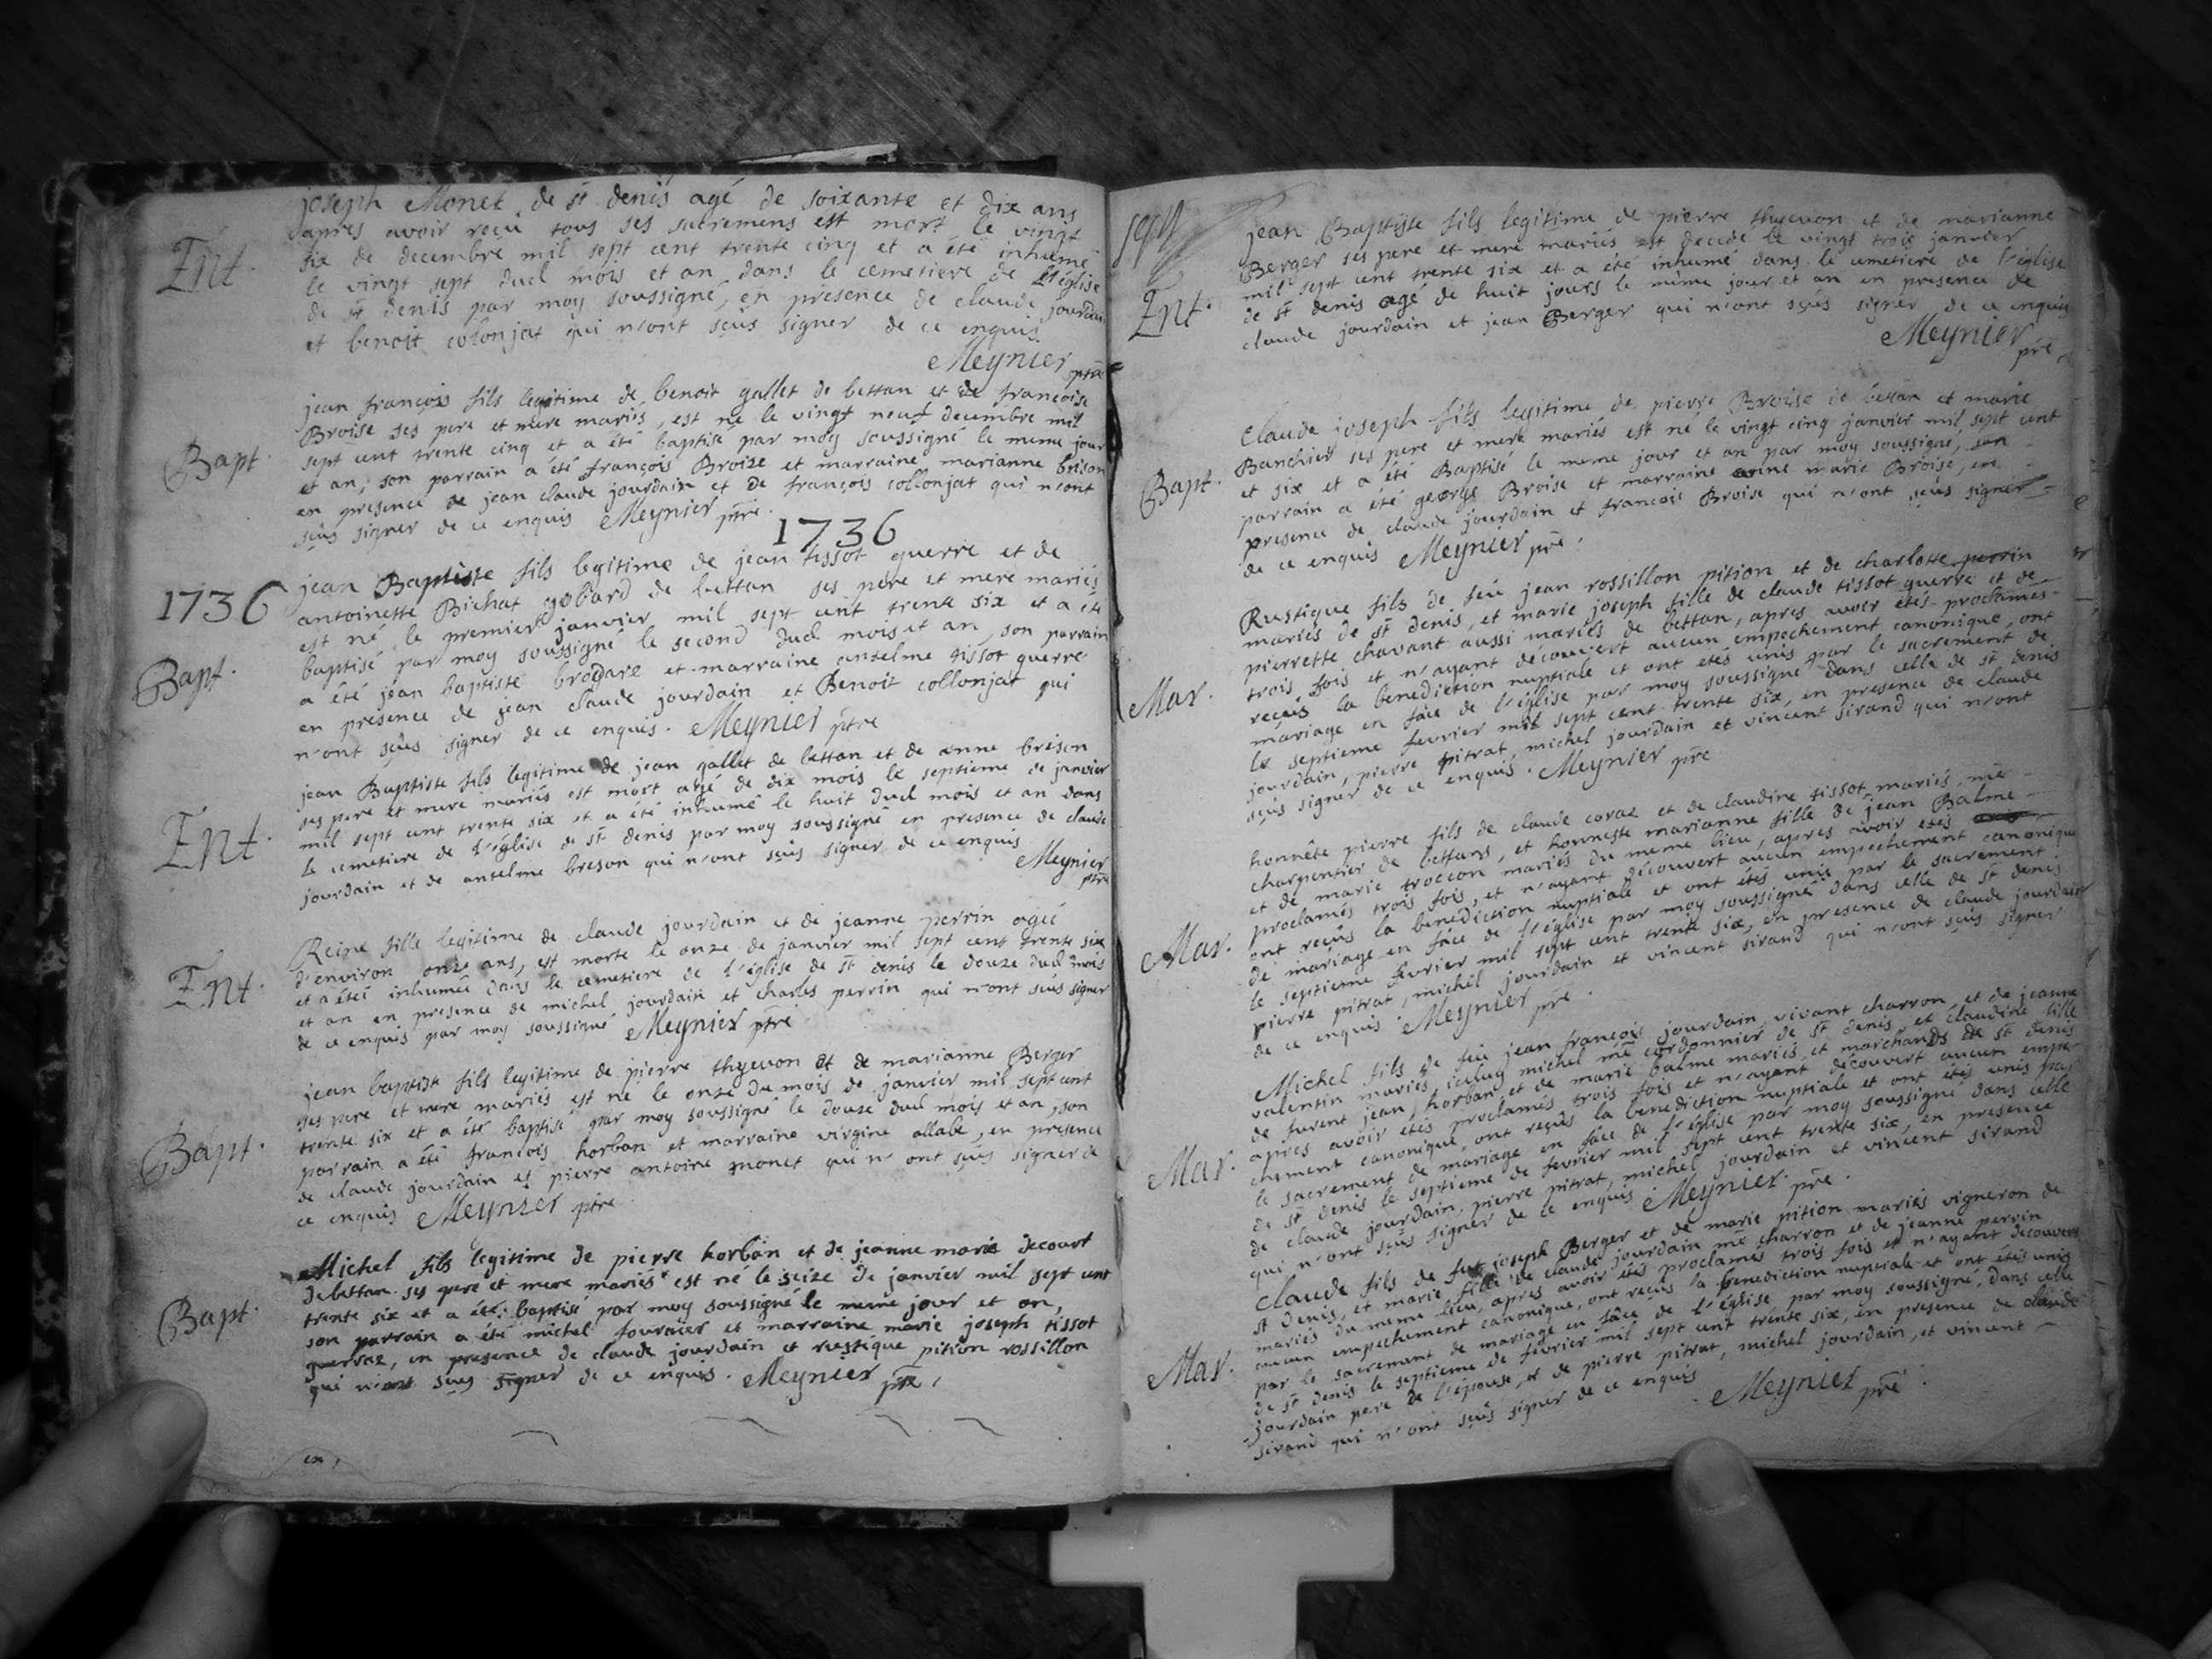 joseph Monet de st denis agé de soixante et dix ans
apres avoir reçu tous ses sacremens est mort le vingt
Ent.
six de decembre mil sept cent trente cinq et a été inhumé
le vingt sept dud mois et an dans le cemetiere de l'église
de st denis par moy soussigné, en presence de claude jourdain
et benoit colonjat qui n'ont sçus signer de ce enquis
Meynier ptre
jean françois fils legitime de benoit gallet de bettan et de francoise
Broise ses pere et mere mariés, est né le vingt neuf decembre mil
Bapt.
sept cent trente cinq et a été baptisé par moy soussigné le meme jour
et an, son parrain a été françois Broise et marraine marianne brison
en presence de jean claude jourdain et de françois collonjat qui n'ont
sçus signer de ce enquis Meynier ptre.
1736
1736
jean Baptiste fils legitime de jean tissot guerre et de
antoinette Bichat gobard de bettan ses pere et mere mariés
est né le premier janvier mil sept cent trente six et a été
Bapt.
baptisé par moy soussigné le second dud mois et an, son parrain
a été jean baptiste brodare et marraine anselme tissot guerre
en presence de jean claude jourdain et Benoit collonjat qui
n'ont sçus signer de ce enquis. Meynier ptre
jean Baptiste fils legitime de jean gallet de bettan et de anne brison
ses pere et mere mariés est mort agé de dix mois le septieme de janvier
Ent.
mil sept cent trente six et a été inhumé le huit dud mois et an dans
le cemetiere de l'église de st denis par moy soussigné en presence de claude
jourdain et de anselme breson qui n'ont sçus signer de ce enquis
Meynier
ptre
Reine fille legitime de claude jourdain et de jeanne perrin agée
d'environ onze ans, est morte le onze de janvier mil sept cent trente six
Ent.
et a étéé inhumée dans le cemetiere de l'église de st denis le douze dud mois
et an en presence de michel jourdain et charles perrin qui n'ont sçus signer
de ce enquis par moy soussigné Meynier ptre
jean baptiste fils legitime de pierre thyevon et de marianne Berger
ses pere et mere mariés est né le onze du mois de janvier mil sept cent
trente six et a été baptisé par moy soussigné le douze dud mois et an, son
Bapt.
parrain a été francois horban et marraine virgine allabe, en presence
de claude jourdain et pierre antoine monet qui n'ont sçus signer de
ce enquis Meynier ptre
Michel fils legitime de pierre horban et de jeanne marie decourt
de bettan ses pere et mere mariés est né le seize de janvier mil sept cent
Bapt.
trente six et a été baptisé par moy soussigné le meme jour et an,
son parrain a été michel fournier et marraine marie joseph tissot
guerraz, en presence de claude jourdain et rustique pition rossillon
qui n'ont sçus signer de ce enquis. Meynier ptre,
en,
jean Baptiste fils legitime de pierre thyevon et de marianne
Berger ses pere et mere mariés est decedé le vingt trois janvier
Ent.
mil sept cent trente six et a été inhumé dans le cemetiere de l'église
de st denis agé de huit jours le même jour et an en presence de
claude jourdain et jean Berger qui n'ont sçus signer de ce enquis
Meynier
ptre,
Claude joseph fils legitime de pierre Broise de bettan et marie
Banchier ses pere et mere mariés est né le vingt cinq janvier mil sept cent
Bapt.
et six et a été Baptisé le meme jour et an par moy soussigné, son
parrain a été george Broise et marraine anne marie Broise, en
presence de claude jourdain et francois Broise qui n'ont sçus signer
de ce enquis Meynier ptre.
Rustique fils de feu jean rossillon pition et de charlotte perrin
mariés de st denis, et marie joseph fille de claude tissot guerre et de
pierrette chavant aussi mariés de bettan, apres avoir étés proclamés
Mar.
trois fois et n'ayant découvert aucun empechement canonique, ont
reçus la benediction nuptiale et ont etés unis par le sacrement de
mariage en face de l'église par moy soussigné dans celle de st denis
le septieme fevrier mil sept cent trente six, en presence de claude
jourdain, pierre pitrat, michel jourdain et vincent sirand qui n'ont
sçus signer de ce enquis. Meynier ptre
honnête pierre fils de claude coraz et de claudine tissot mariés, me
charpentier de bettans, et honneste marianne fille de jean Balme
et de marie troccon mariés du meme lieu, apres avoir etés
Mar.
proclamés trois fois, et n'ayant découvert aucun empechement canonique
ont reçus la benediction nuptiale et ont étés unis par le sacrement
de mariage en face de l'église par moy soussigné dans celle de st denis
le septieme fevrier mil sept cent trente six, en presence de claude jourdain
pierre pitrat, michel jourdain et vincent sirand qui n'ont sçus signer
de ce enquis. Meynier ptre.
Michel fils de feu jean françois jourdain vivant charron et de jeanne
valentin mariés, iceluy michel me cordonnier de st denis, et claudine fille
de furent jean horban et de marie balme mariés, et marchands de st denis
Mar.
apres avoir etés proclamés trois fois et n'ayant découvert aucun empe-
chement canonique, ont reçus la benediction nuptiale et ont étés unis par
le sacrement de mariage en face de l'église par moy soussigné dans celle
de st denis le septieme de fevrier mil sept cent trente six, en presence
de claude jourdain, pierre pitrat, michel jourdain et vincent sirand
qui n'ont sçus signer de ce enquis Meynier ptre.
Claude fils de feu joseph Berger et de marie pition mariés vigneron de
st denis, et marie fille de claude jourdain me charron et de jeanne perrin
mariés du meme lieu, apres avoir étés proclamés trois fois et n'ayant découvert
Mar.
aucun empechement canonique, ont reçus la benediction nuptiale et ont etés unis
par le sacrement de mariage en face de l'église par moy soussigné, dans celle
de st denis le septieme de fevrier mil sept cent trente six, en presence de claude
jourdain pere de l'épouse, et de pierre pitrat, michel jourdain, et vincent
sirand qui n'ont sçus signer de ce enquis. Meynier ptre.